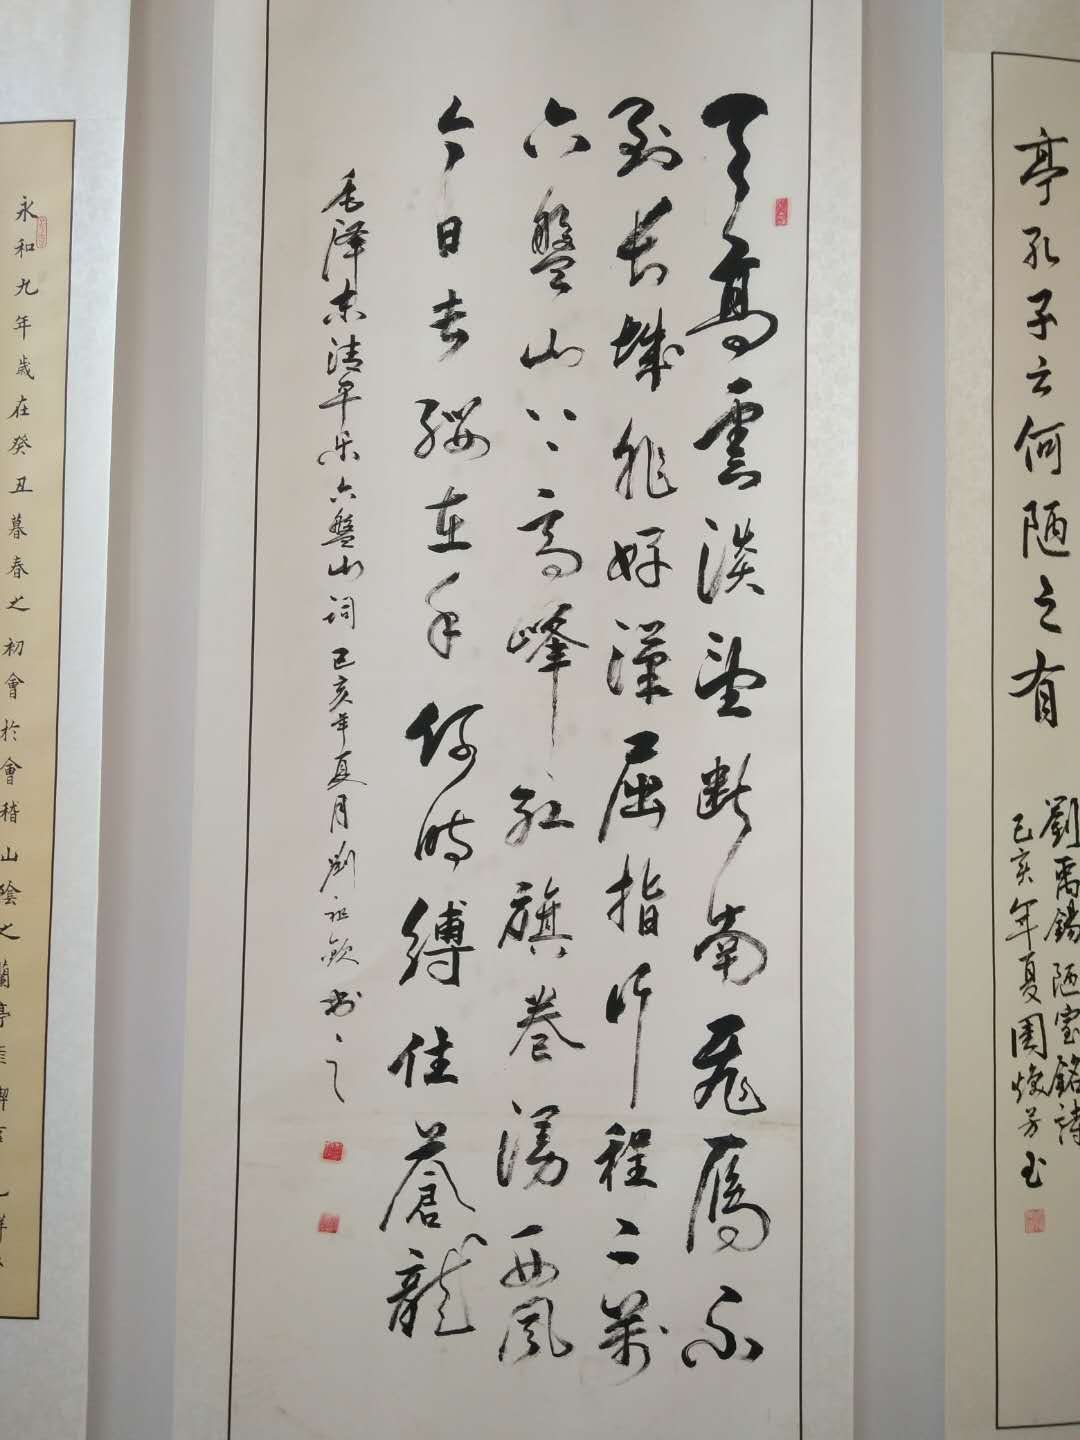 亭孔子云何陋之有
劉禹錫陋室銘詩
己亥年夏周焕芳书
天高雲淡望断南飛雁不
到长城非好漢屈指行程二萬
六盤山上高峰红旗卷漫西風
今日长缨在手何时縛住蒼龍
毛泽东清平乐六盤山词己亥年夏月劉祖欽书之
永和九年歲在癸丑暮春之初會於會稽山陰之蘭亭